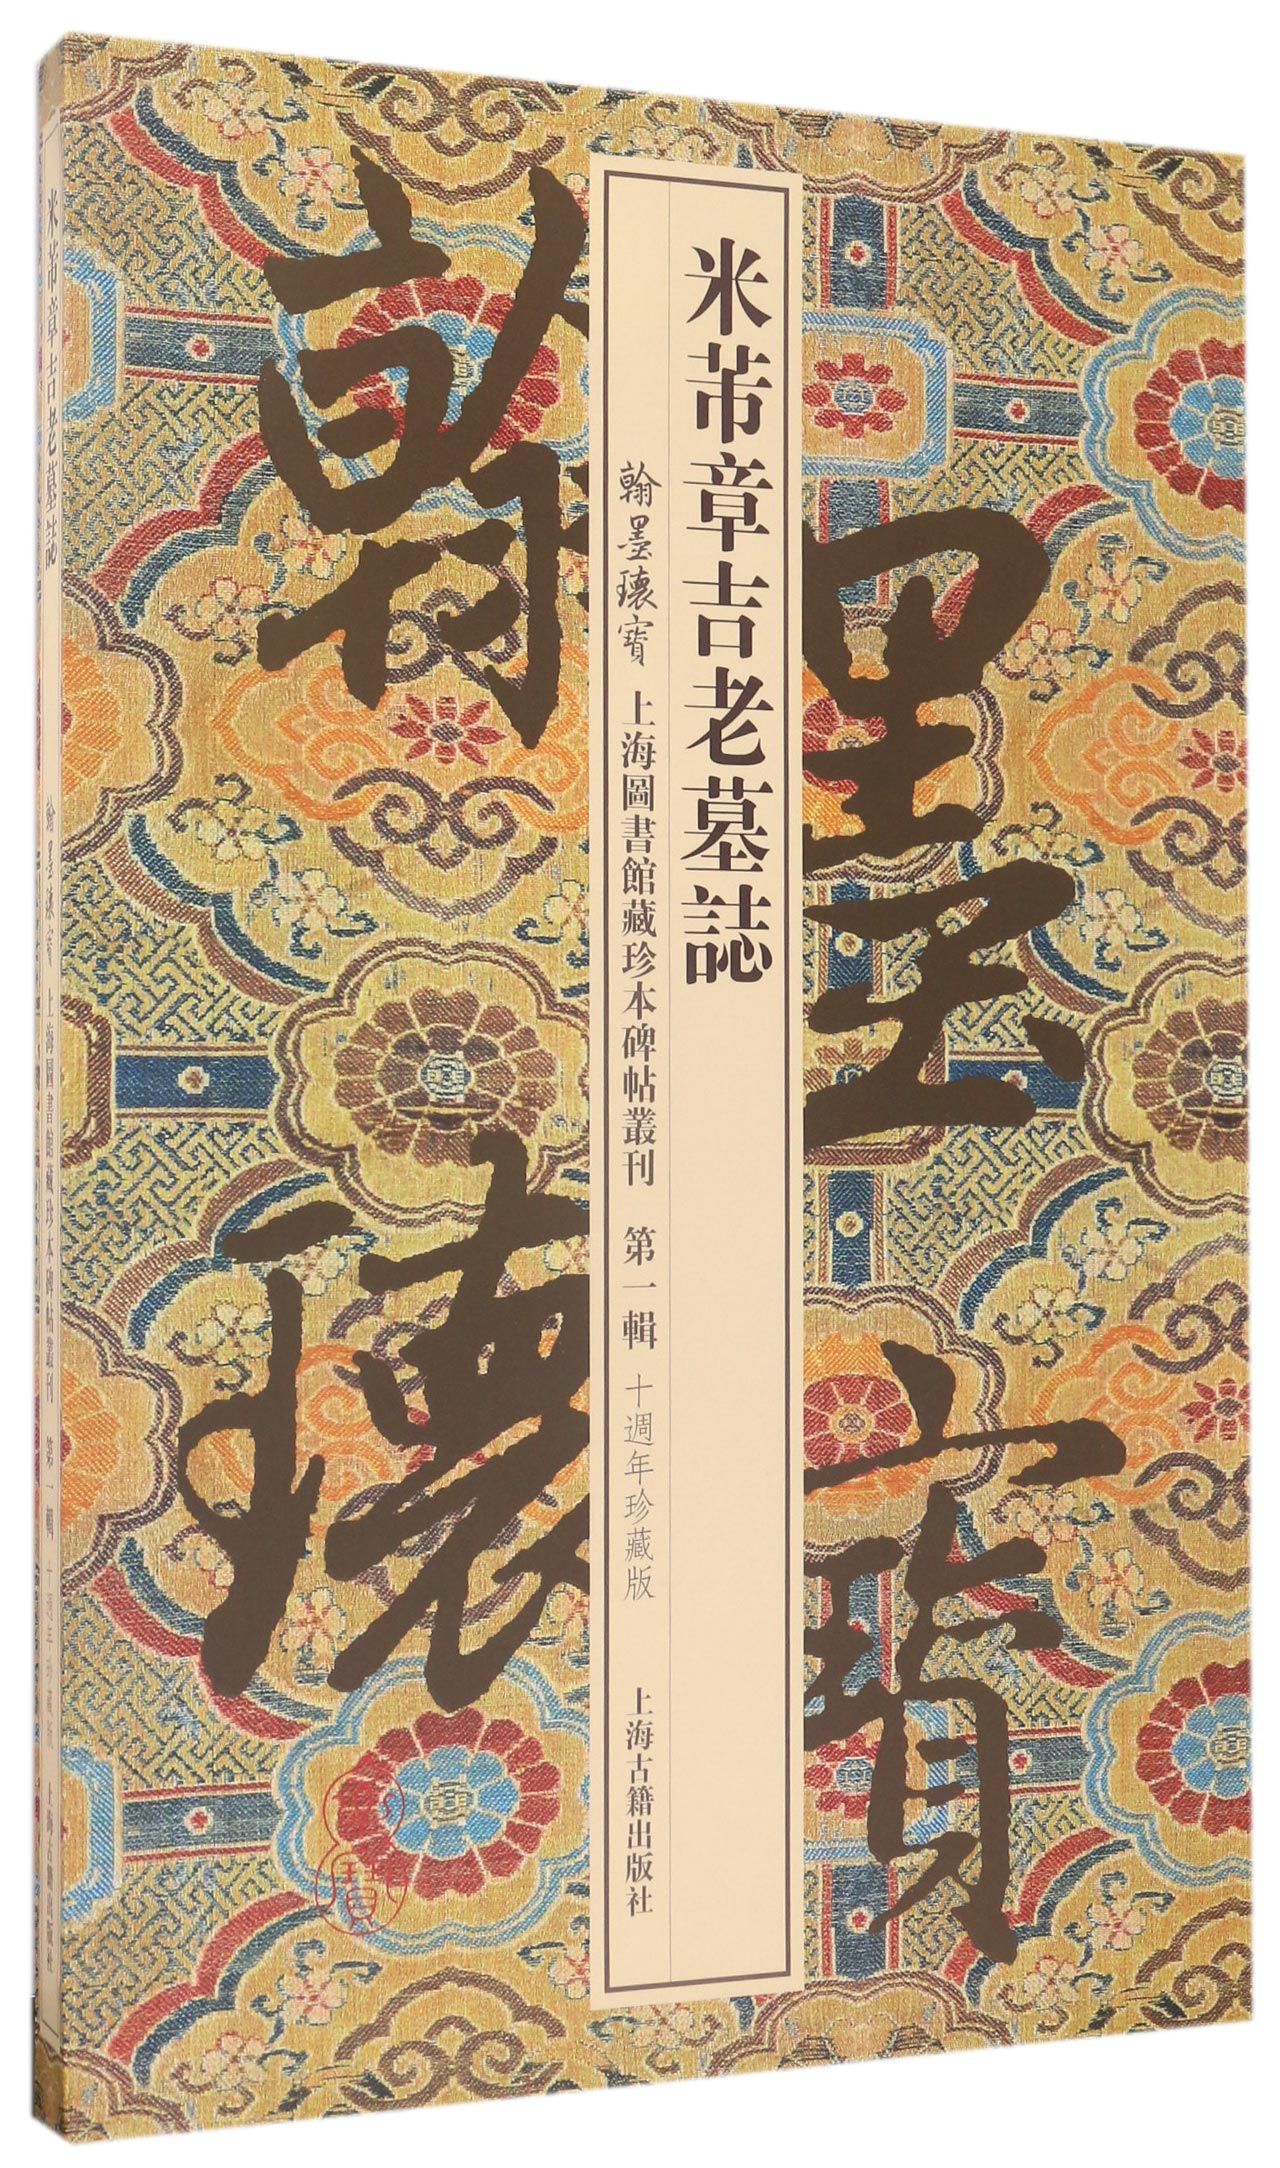 米芾章吉老墓誌
翰墨瓌寶 上海圖書館藏珍本碑帖叢刊 第一輯 十週年珍藏版 上海古籍出版社
翰墨
瓌寶
米芾章吉老墓誌 翰墨瓌寶 上海圖書館藏珍本碑帖叢刊 第一輯 十週年珍藏版 上海古籍出版社